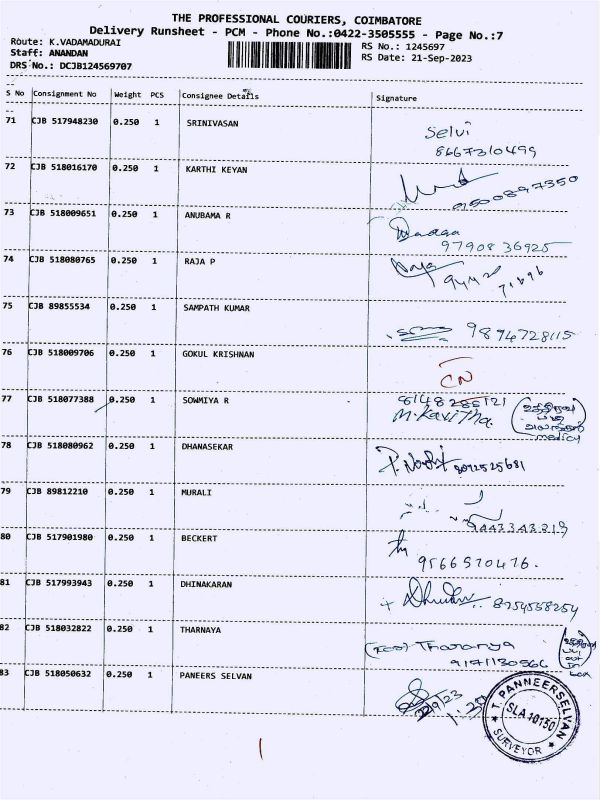 THE PROFESSIONAL COURIERS, COIMBATORE
Delivery Runsheet - PCM - Phone No.:0422-3505555 - Page No.:7
Route: K.VADAMADURAI
RS No.: 1245697
Staff: ANANDAN
RS Date: 21-Sep-2023
DRS No.: DCJB124569707
S No Consignment No Weight PCS Consignee Details Signature
71 CJB 517948230 0.250 1 SRINIVASAN Selvi
8667310499
72 CJB 518016170 0.250 1 KARTHI KEYAN
73 CJB 518009651 0.250 1 ANUBAMA R
97908 36925
74 CJB 518080765 0.250 1 RAJA P
75 CJB 89855534 0.250 1 SAMPATH KUMAR
9894728115
76 CJB 518009706 0.250 1 GOKUL KRISHNAN
CN
77 CJB 518077388 0.250 1 SOWMIYA R
M.Kavitha.
78 CJB 518080962 0.250 1 DHANASEKAR
79 CJB 89812210 0.250 1 MURALI
9443343219
80 CJB 517901980 0.250 1 BECKERT
9566570476.
81 CJB 517993943 0.250 1 DHINAKARAN
82 CJB 518032822 0.250 1 THARNAYA
Tharanya
9171130566
83 CJB 518050632 0.250 1 PANEERS SELVAN
T. PANNEERSELVAN
SLA 10150
SURVEYOR